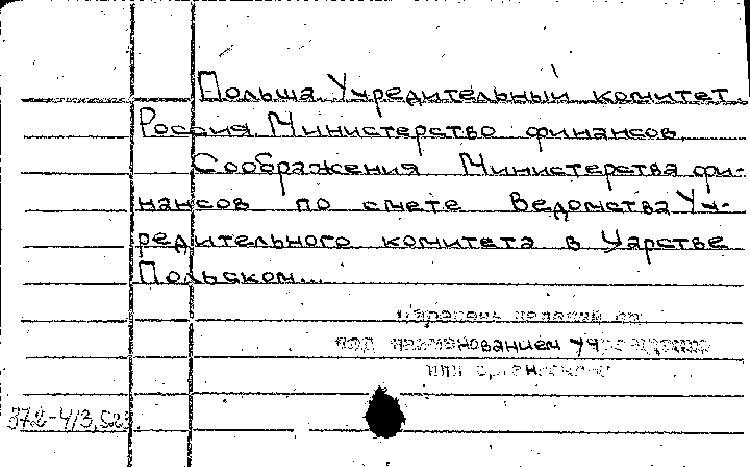 Польша. Учредительный комитет.
Россия. Министерство финансов.
Соображения Министерства фи-
нансов по смете Ведомства Уч-
редительного комитета в Царстве
Польском...
под наименованием учреждения
или